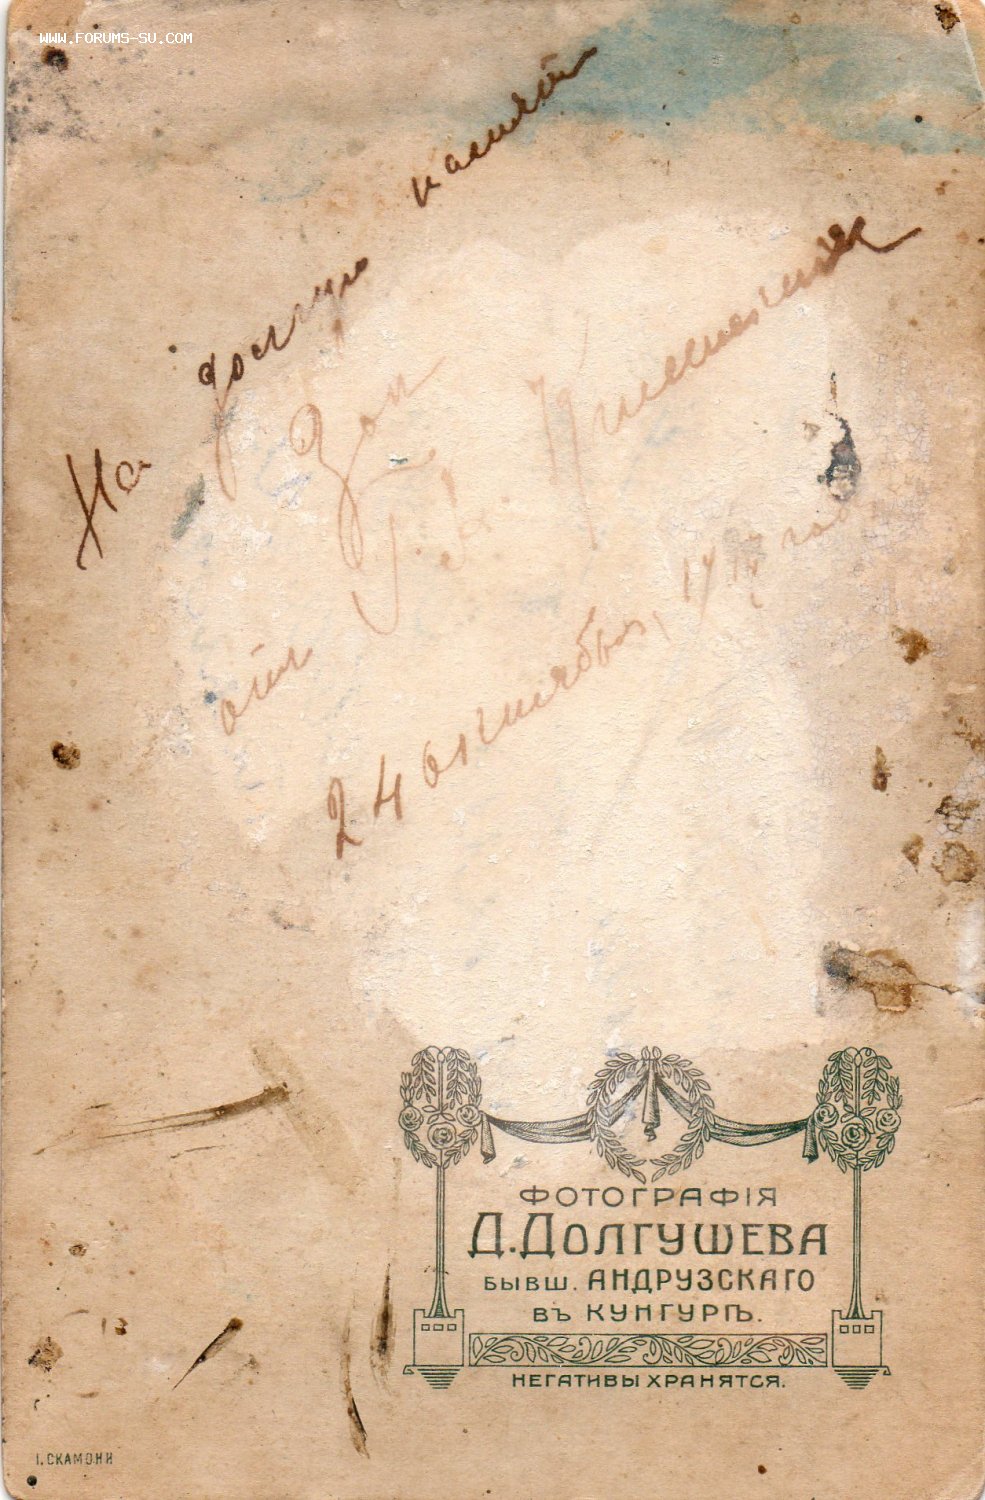 WWW.FORUMS-SU.COM
На долгую память
Зои
отъ
24 октября, 1917 года
ФОТОГРАФІЯ
Д.ДОЛГУШЕВА
БЫВШ. АНДРУЗСКАГО
ВЪ КУНГУРѢ.
НЕГАТИВЫ ХРАНЯТСЯ.
І.СКАМОНИ